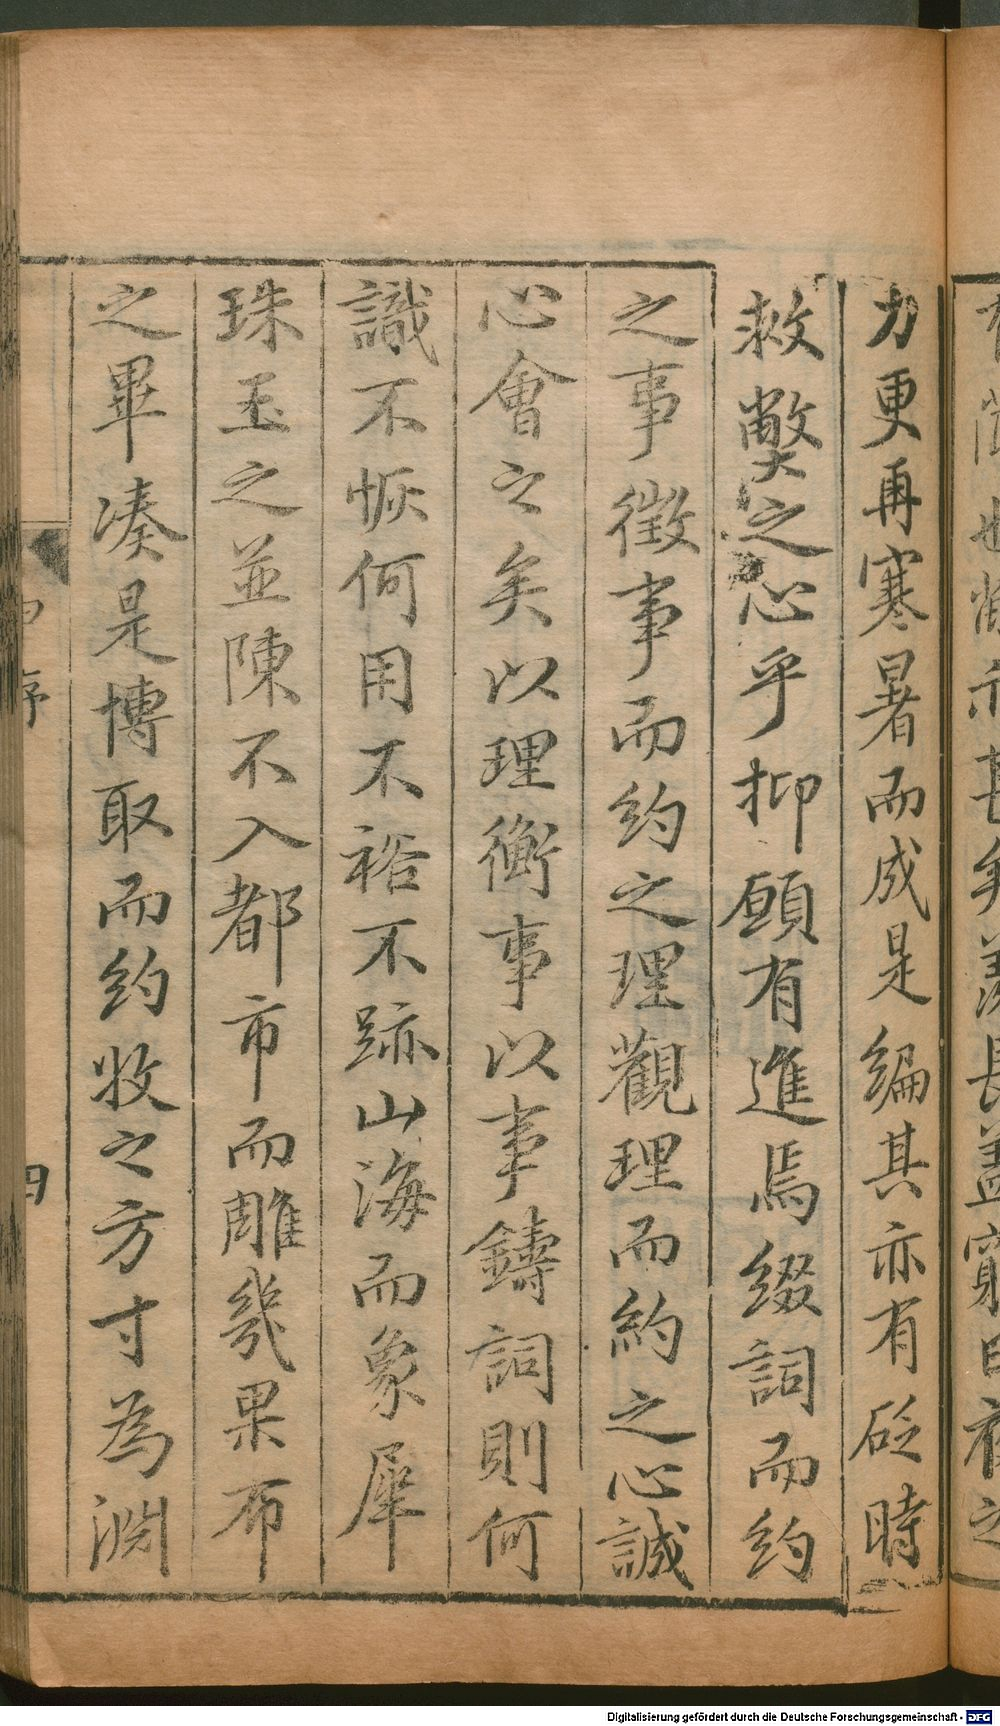 力更再寒暑而成是編其亦有砭時
救獘之心乎抑願有進焉綴詞而約
之事徵事而約之理觀理而約之心誠
心會之矣以理衡事以事鑄詞則何
識不恢何用不裕不跡山海而象犀
珠玉之並陳不入都市而雕幾果布
之畢湊是博取而約收之方寸為淵
序
四
Digitalisierung gefördert durch die Deutsche Forschungsgemeinschaft - DFG